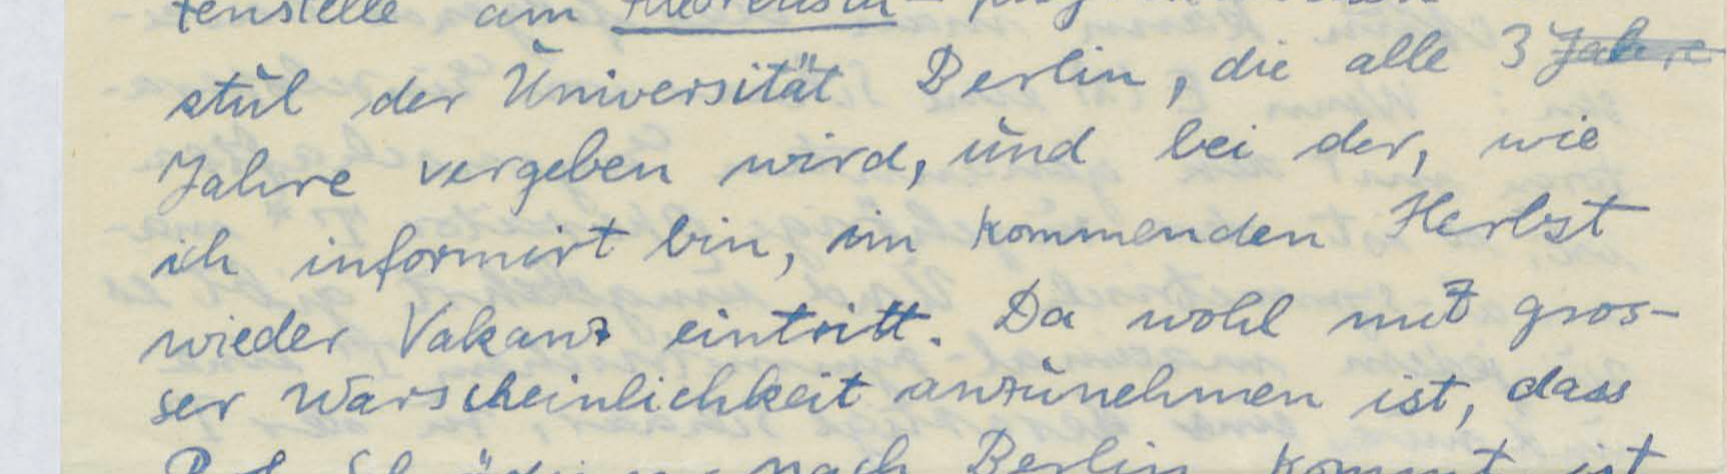 tenstelle am theoretisch-
stul der Universität Berlin, die alle 3 Jahre
Jahre vergeben wird, und bei der, wie
ich informirt bin, im kommenden Herbst
wieder Vakanz eintritt. Da wohl mit gros-
ser Warscheinlichkeit anzunehmen ist, dass
Prof. Schrödinger nach Berlin kommt ist